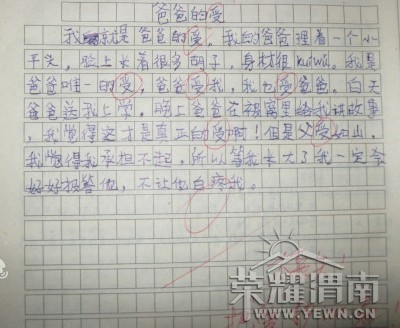 爸爸的受
我就是爸爸的受。我的爸爸理着一个小
平头，脸上长着很多胡子，身材很kuíwú。我是
爸爸唯一的受，爸爸受我，我也受爸爸。白天
爸爸送我上学，晚上爸爸在被窝里给我讲故事
，我觉得这才是真正的受啊！但是父受如山，
我觉得我承担不起，所以等我长大了我一定会
好好报答他，不让他白疼我。
荣耀渭南
WWW.YEWN.CN